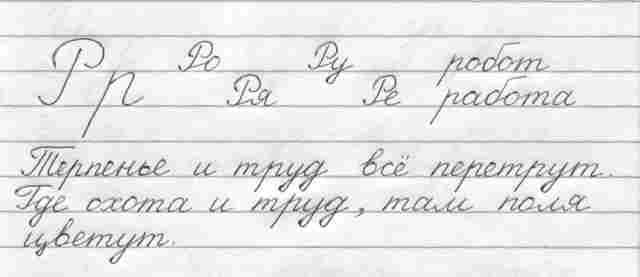 Рр Ро Ру робот
Ря Ре работа
Терпенье и труд всё перетрут.
Где охота и труд, там поля
цветут.